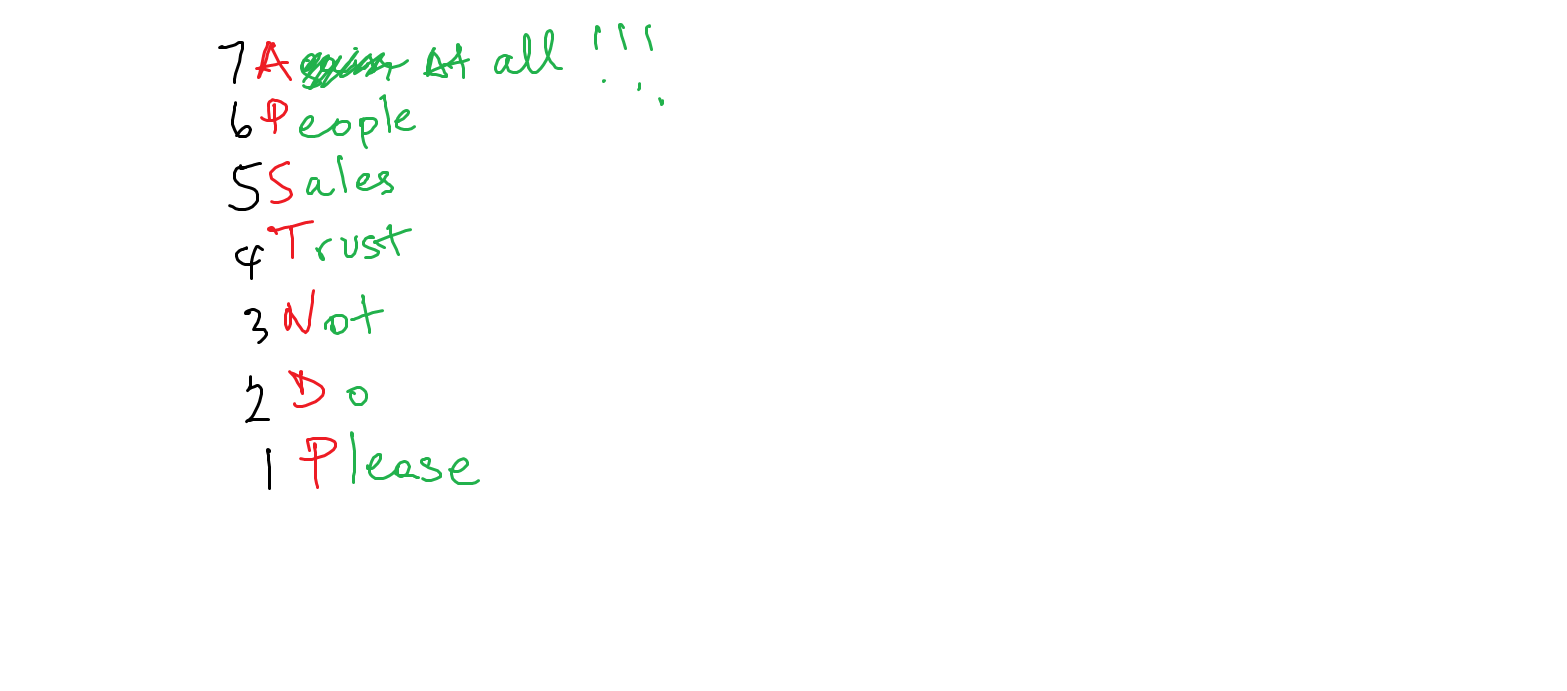 7 A At all !!!
6 People
5 Sales
4 Trust
3 Not
2 Do
1 Please